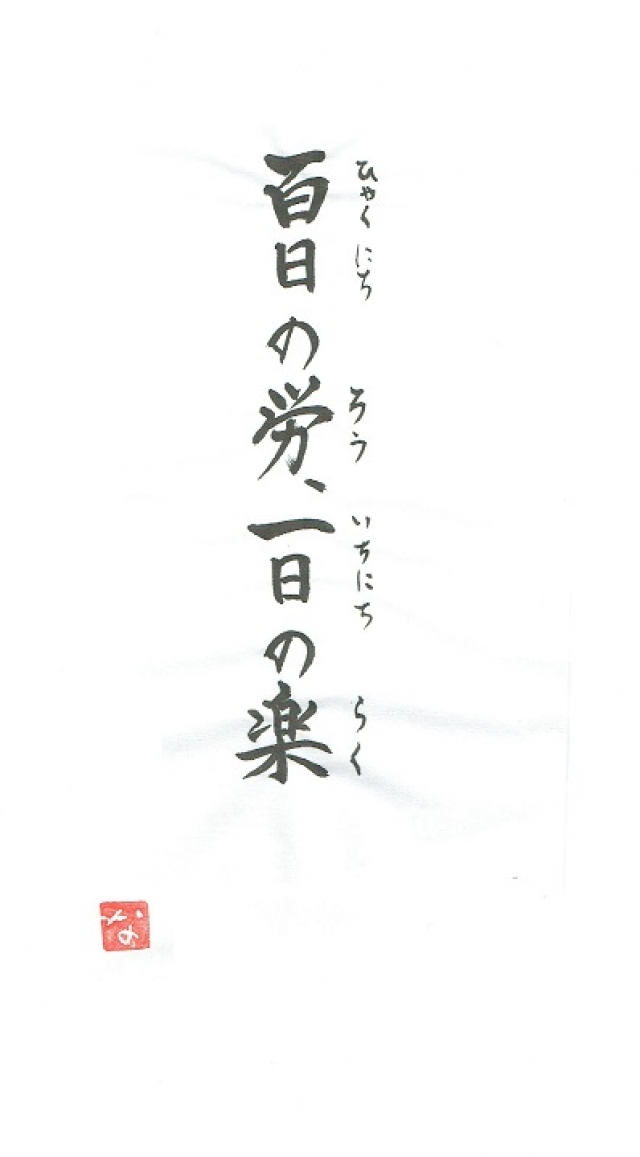 百日の労、一日の楽
ひゃくにち ろう いちにち らく
な